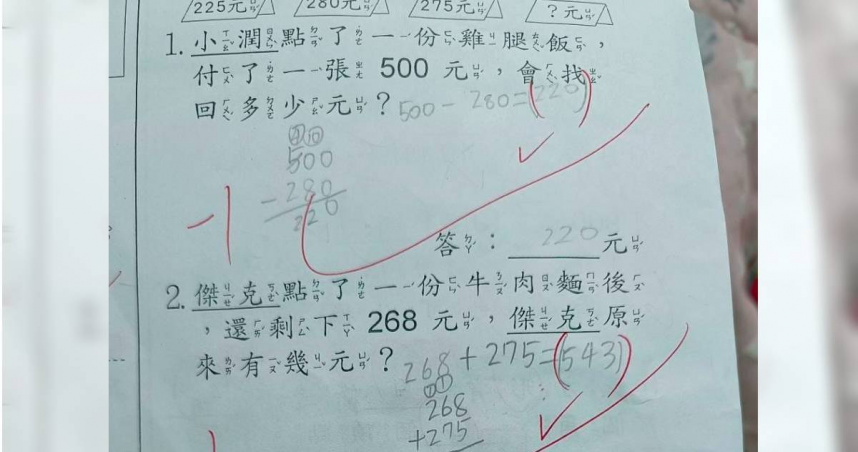 225元 280元 275元 ?元
1. 小潤點了一份雞腿飯,
付了一張 500 元,會找
回多少元? 500-280=(220)
500
-280
220
-1
答: 220元
2. 傑克點了一份牛肉麵後
,還剩下 268 元,傑克原
來有幾元? 268+275=(543)
268
+275